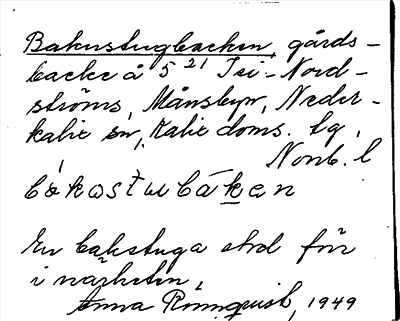 Bakustugbacken, gårds-
backe å 5 21 Isi-Nord-
ströms, Månsbyn, Neder-
kalix sn, Kalix doms. tg,
Norrb. l
En bakstuga stod förr
i närheten.
Anna Rönnquist, 1949